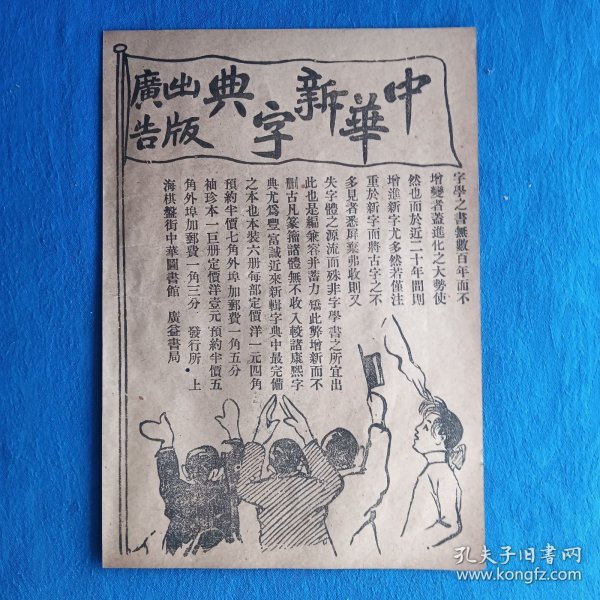 中華新字典
出版
廣告
字學之書無數百年而不
增變者蓋進化之大勢使
然也而於近二十年間則
增進新字尤多然若僅注
重於新字而將古字之不
多見者悉屏棄弗收則又
失字體之源流而殊非字學書之所宜出
此也是編兼容并蓄力矯此弊增新而不
刪古凡篆籀諸體無不收入較諸康熙字
典尤爲豐富誠近來新輯字典中最完備
之本也本裝六册每部定價洋一元四角
預約半價七角外埠加郵費一角五分
袖珍本一巨册定價洋壹元預約半價五
角外埠加郵費一角三分 發行所·上
海棋盤街中華圖書館 廣益書局
孔夫子旧书网
www.kongfz.com